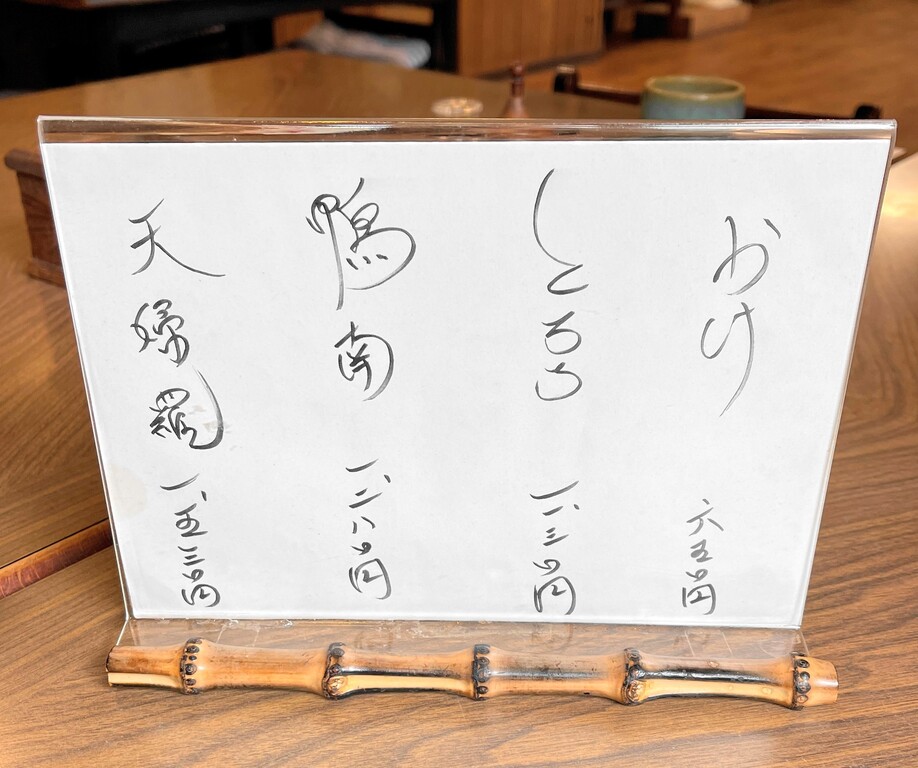 かけ 六五〇円
とろろ 一、一三〇円
鴨南 一、二八〇円
天婦羅 一、五三〇円